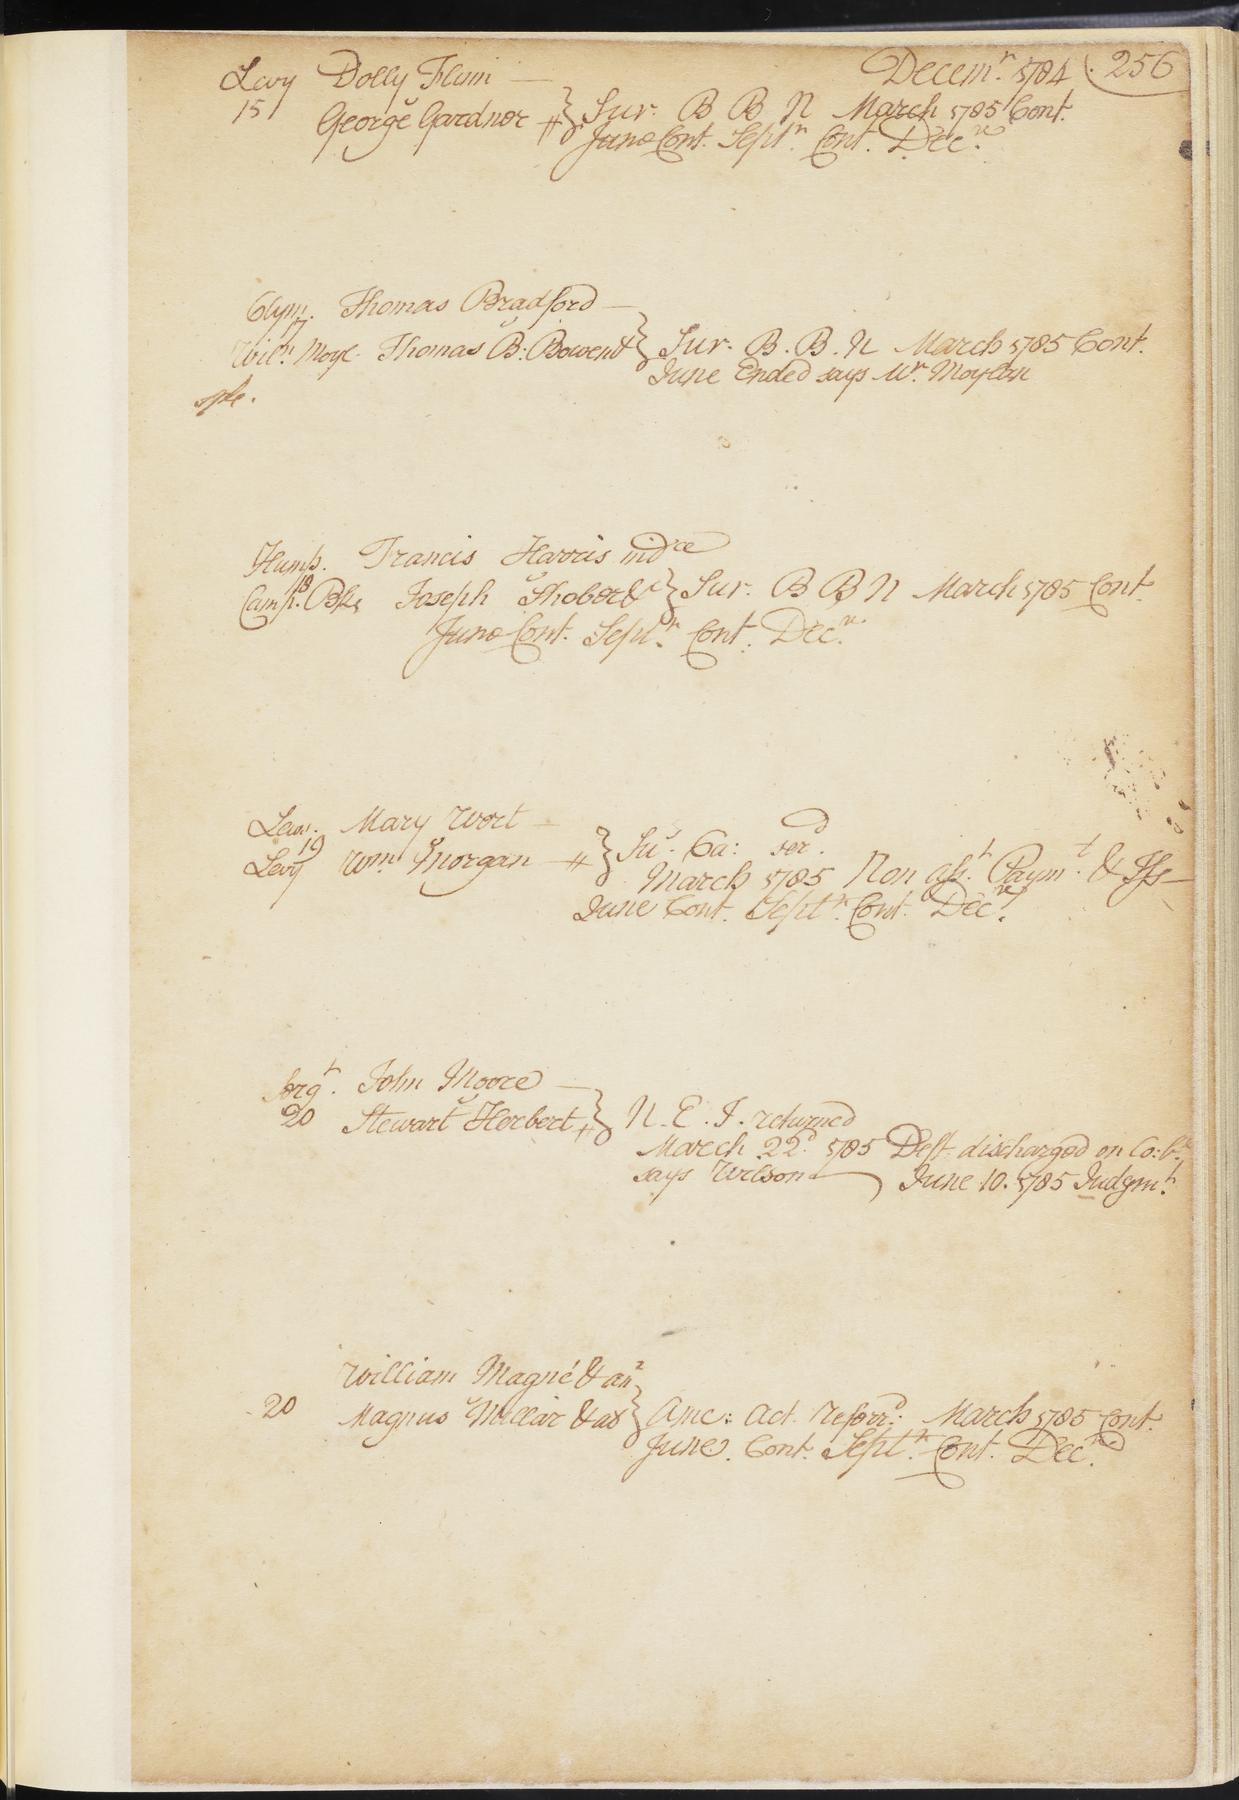 Decemr. 1784 256
Levy Dolly Flim
v
15 George Gardner } Sur. B B N March 1785 Cont.
June Cont. Septr. Cont. Decr.
Clym. Thomas Bradford
17 v
Wiln. Moyl. Thomas B. Bowend } Sur. B. B. N March 1785 Cont.
June Ended says Mr. Moylan
Hump. Francis Harris indce
18 v
Camp. Bks Joseph Thobert & } Sur. B B N March 1785 Cont.
June Cont. Septr. Cont. Decr.
Lew. Mary Wort
19 v
Levy Wm. Morgan } Su. Ca: serd.
March 1785 Non asst. Paymt. & Iss
June Cont. Septr. Cont. Decr.
Sergt. John Moore
v
20 Stewart Herbert } N. E. I. returned
March 22d. 1785 Deft. discharged on Co: bl.
says Wilson June 10. 1785 Judgmt.
William Magne & anr
v
20 Magnus Millar & as } Amc: Act. referrd. March 1785 Cont.
June. Cont. Septr. Cont. Decr.